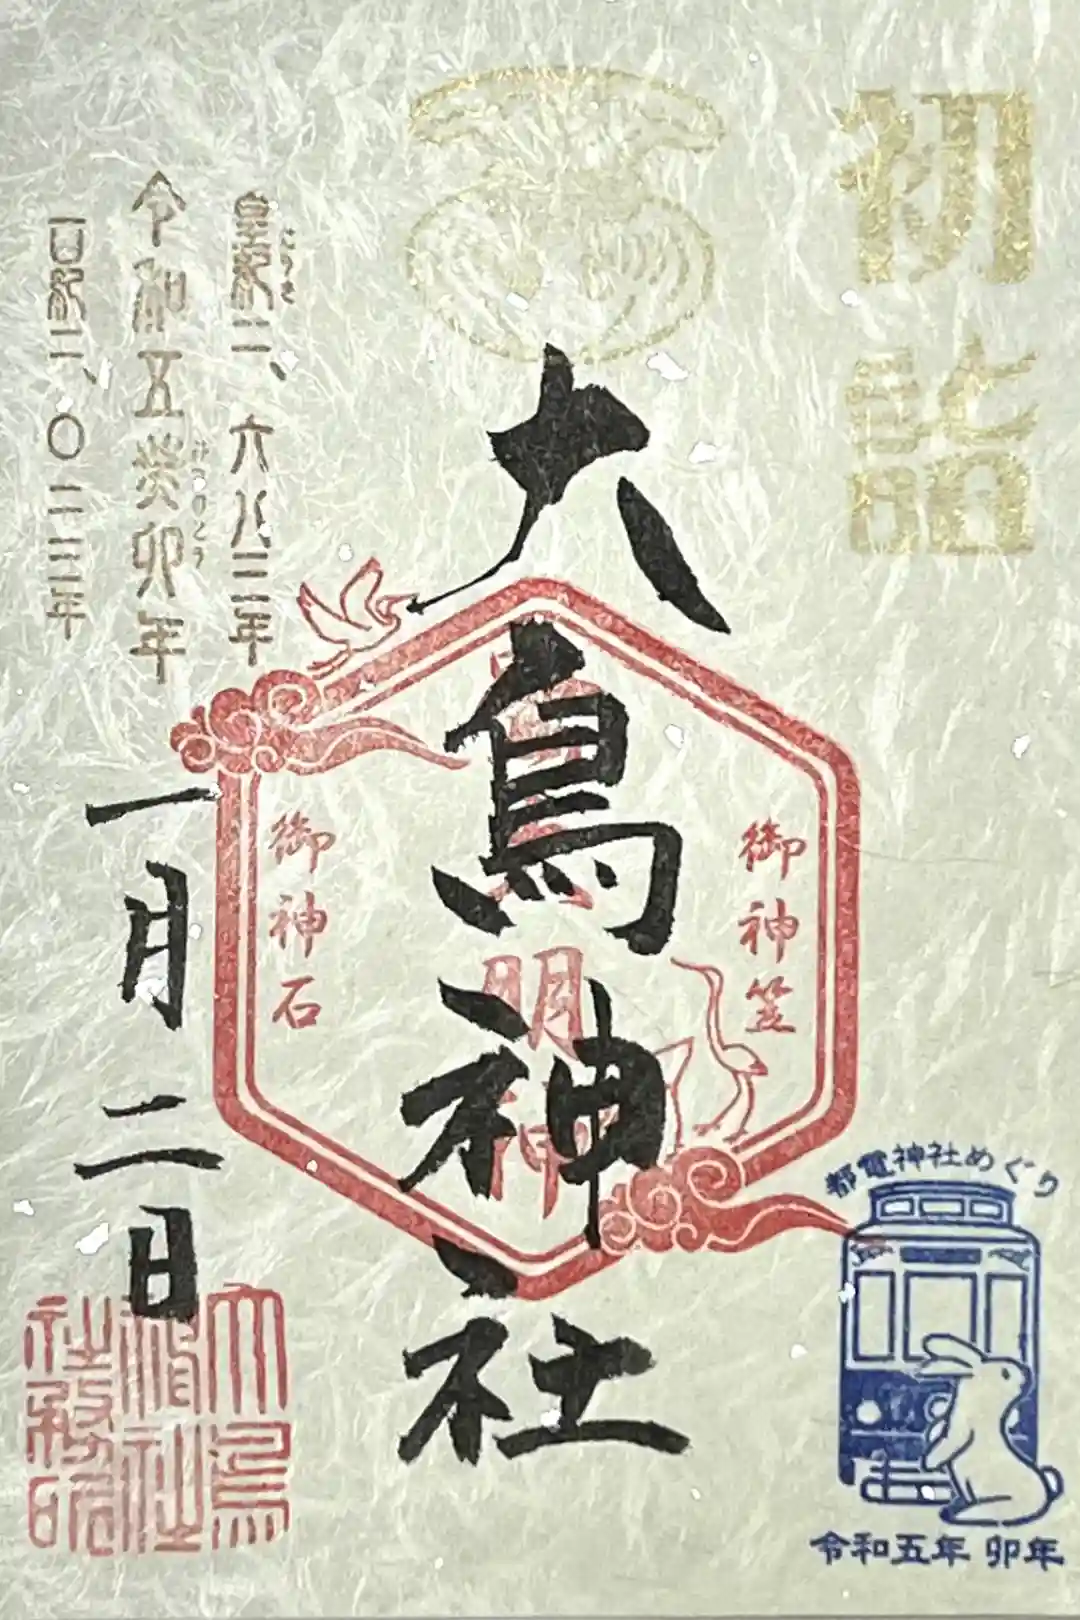 初詣
大鳥神社
御神笠
御神石
皇紀二、六八三年
こうき
令和五癸卯年
みずのとう
西紀二、〇二三年
一月二日
大鳥
神社
社務印
都電神社めぐり
令和五年 卯年